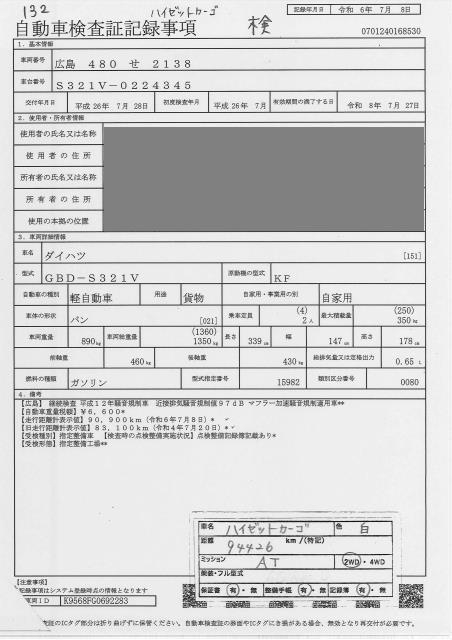 132
ハイゼットカーゴ
検
記録年月日 令和 6年 7月 8日
自動車検査証記録事項
0701240168530
1. 基本情報
車両番号 広島 480 せ 2138
車台番号 S321V-0224345
交付年月日 平成26年 7月28日 初度検査年月 平成26年 7月 有効期間の満了する日 令和 8年 7月27日
2. 使用者・所有者情報
使用者の氏名又は名称
使用者の住所
所有者の氏名又は名称
所有者の住所
使用の本拠の位置
3. 車両詳細情報
車名 ダイハツ [151]
型式 GBD-S321V 原動機の型式 KF
自動車の種別 軽自動車 用途 貨物 自家用・事業用の別 自家用
車体の形状 バン [021] 乗車定員 (4) 2人 最大積載量 (250) 350kg
車両重量 890kg 車両総重量 (1360) 1350kg 長さ 339cm 幅 147cm 高さ 178cm
前軸重 460kg 後軸重 430kg 総排気量又は定格出力 0.65 L
燃料の種類 ガソリン 型式指定番号 15982 類別区分番号 0080
4. 備考
【広島】 継続検査 平成12年騒音規制車 近接排気騒音規制値97dB マフラー加速騒音規制適用車**
【自動車重量税額】¥6,600*
【走行距離計表示値】90,900km(令和6年7月8日)*
【旧走行距離計表示値】83,100km(令和4年7月20日)*
【受検種別】指定整備車 【検査時の点検整備実施状況】点検整備記録簿記載あり*
【受検形態】指定整備工場**
車名 ハイゼットカーゴ 色 白
距離 94426 km/(特記)
ミッション AT 2WD・4WD
働装・フル型式
保証書 有・無 整備手帳 有・無 記録簿 有・無
【注意事項】
記録事項はシステム登録時点の情報となります
車両ID K9568FG0692283
証のICタグ部分は折り曲げずに保管ください。自動車検査証の券面やICタグにき損がある場合、無効となり再交付が必要です。